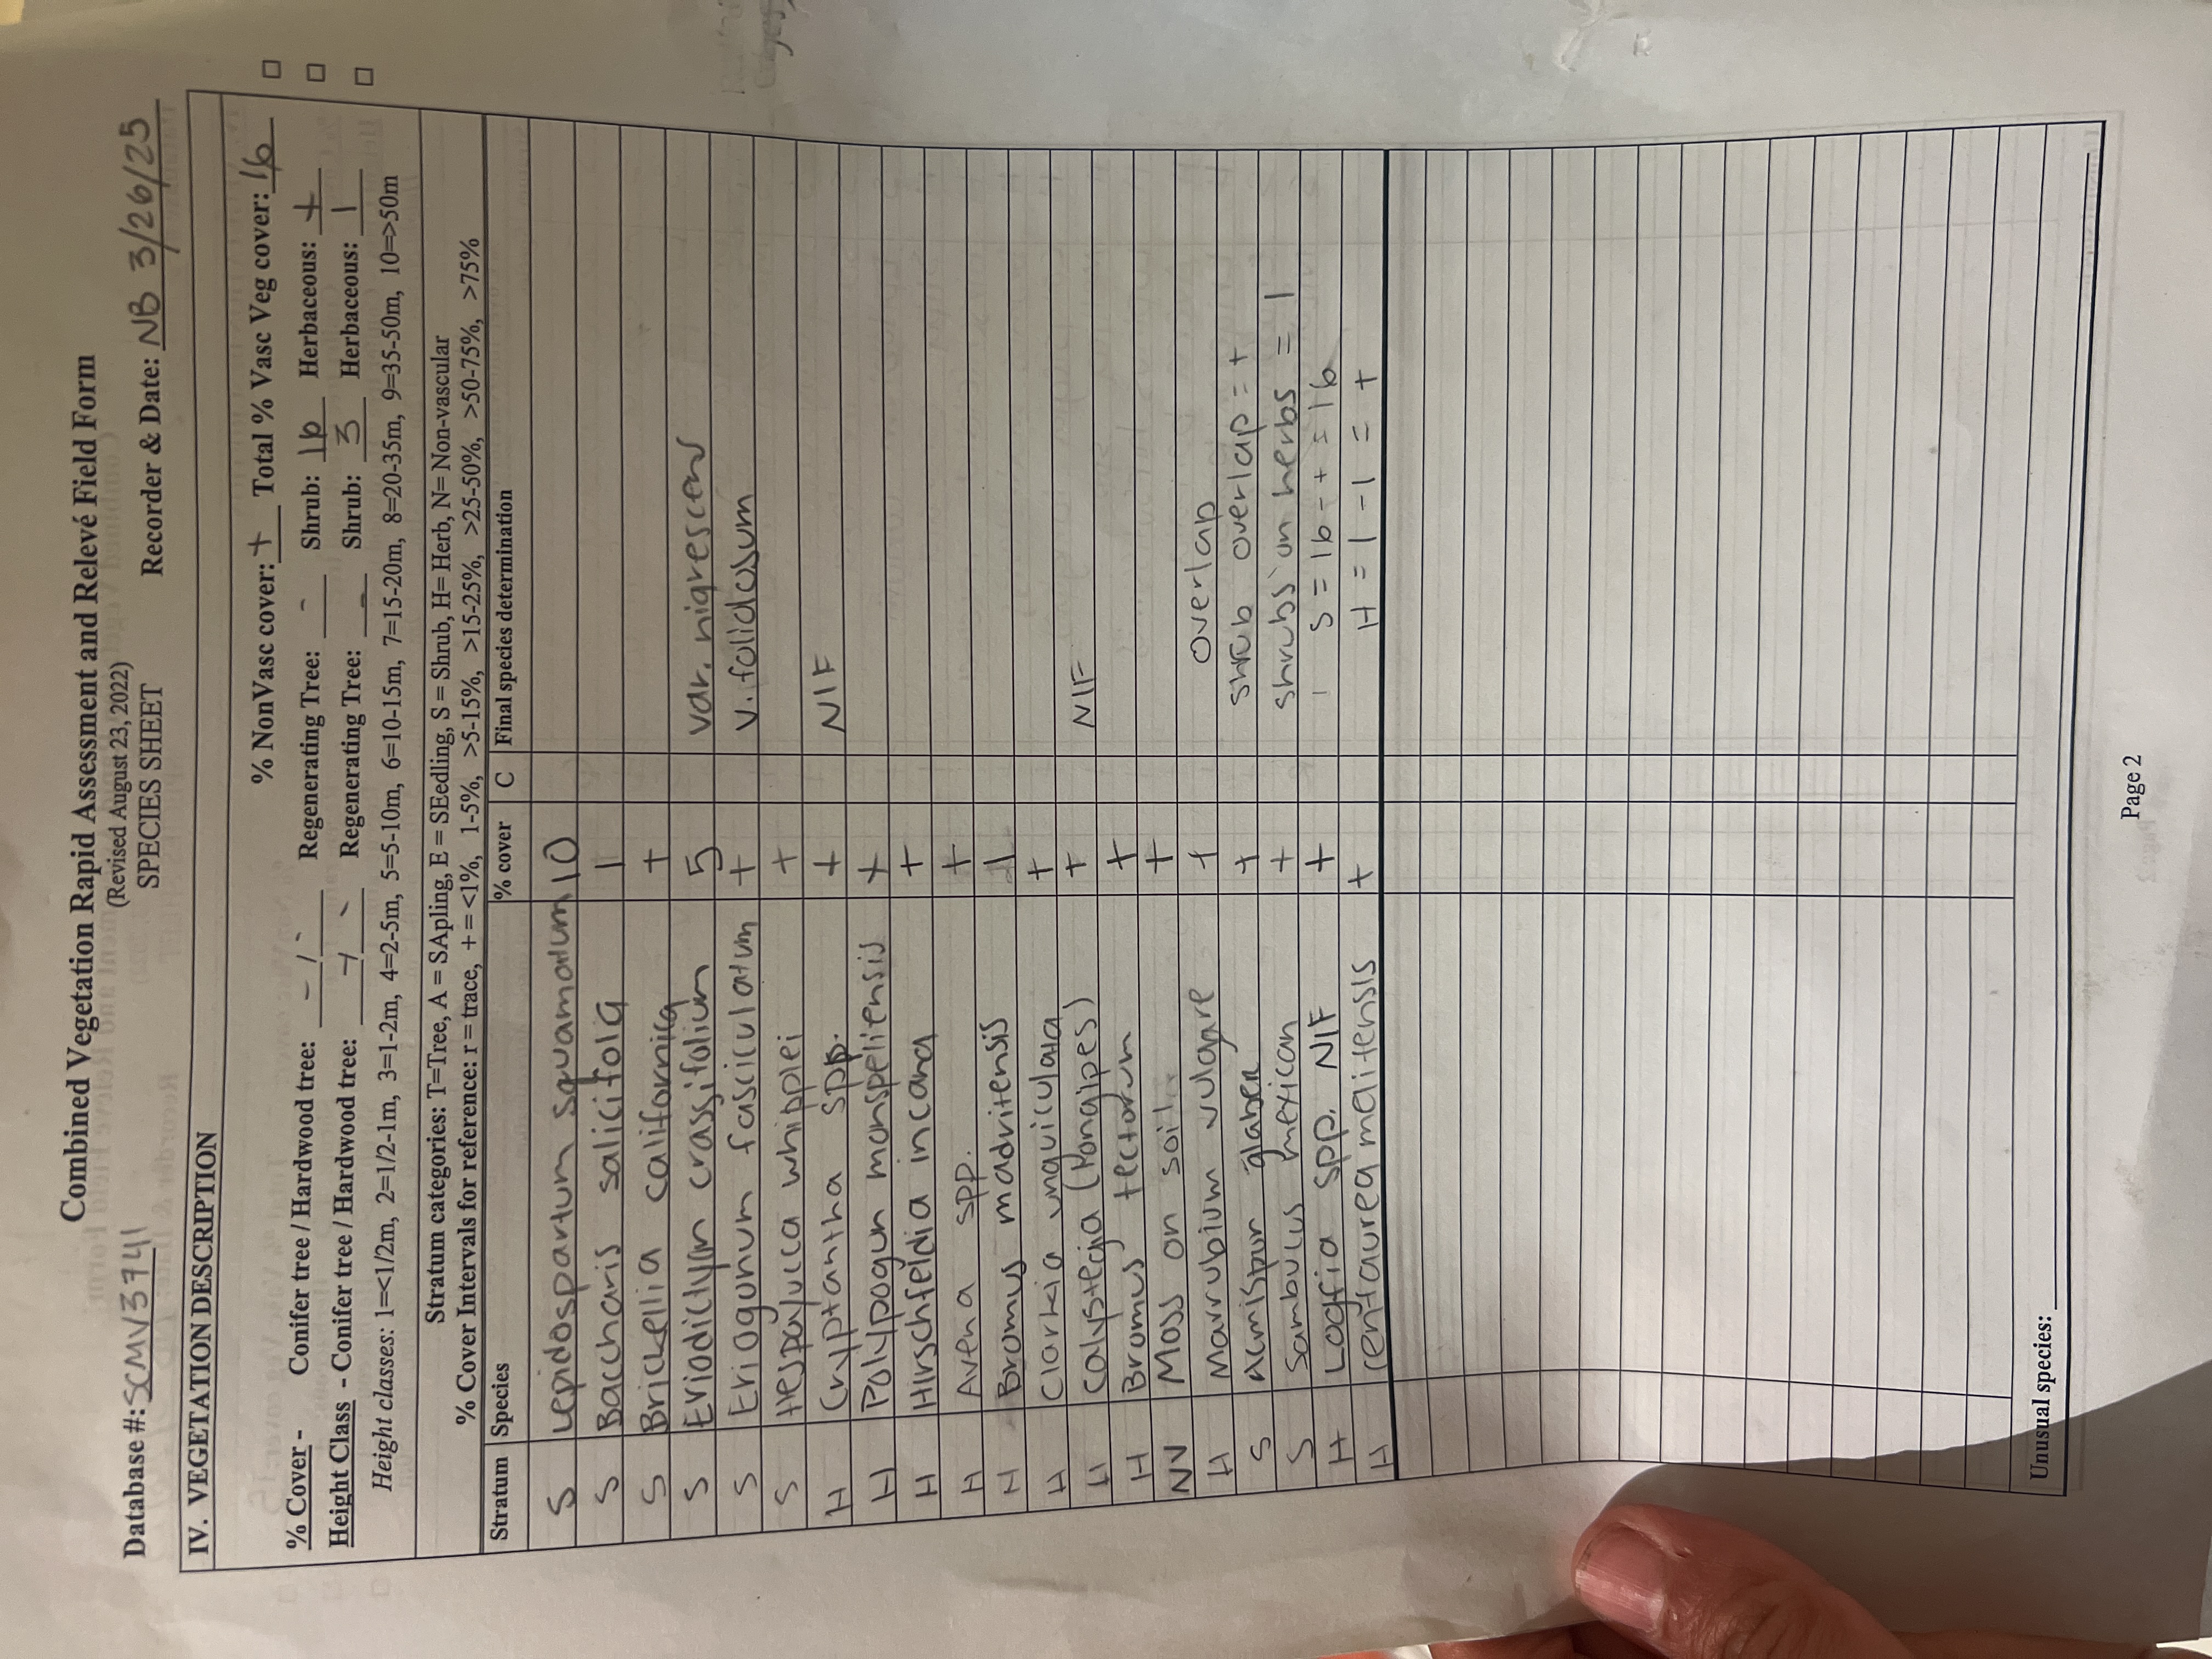 Combined Vegetation Rapid Assessment and Relevé Field Form
(Revised August 23, 2022)
Database #: SCMV3741 SPECIES SHEET Recorder & Date: NB 3/26/25
IV. VEGETATION DESCRIPTION
% NonVasc cover: + Total % Vasc Veg cover: 16
% Cover - Conifer tree / Hardwood tree: - / - Regenerating Tree: - Shrub: 16 Herbaceous: +
Height Class - Conifer tree / Hardwood tree: - / - Regenerating Tree: - Shrub: 3 Herbaceous: 1
Height classes: 1=<1/2m, 2=1/2-1m, 3=1-2m, 4=2-5m, 5=5-10m, 6=10-15m, 7=15-20m, 8=20-35m, 9=35-50m, 10=>50m
Stratum categories: T=Tree, A = SApling, E = SEedling, S = Shrub, H= Herb, N= Non-vascular
% Cover Intervals for reference: r = trace, + = <1%, 1-5%, >5-15%, >15-25%, >25-50%, >50-75%, >75%
Stratum Species % cover C Final species determination
S Lepidospartum squamatum 10
S Baccharis salicifolia 1
S Brickellia californica +
S Eriodictyon crassifolium 5 var. nigrescens
S Eriogonum fasciculatum + v. foliolosum
S Hesperoyucca whipplei +
H Cryptantha spp. + NIF
H Polypogon monspeliensis +
H Hirschfeldia incana +
H Avena spp. +
H Bromus madritensis 1
H Clarkia unguiculata +
H Calystegia (longipes) + NIF
H Bromus tectorum +
NV Moss on soil +
H Marrubium vulagre + overlap
S Acmispon glaber + shrub overlap = +
S Sambucus mexican + shrubs on herbs = 1
H Logfia spp. NIF + S = 16 - + = 16
H Centaurea melitensis + H = 1 - 1 = +
Unusual species:
Page 2